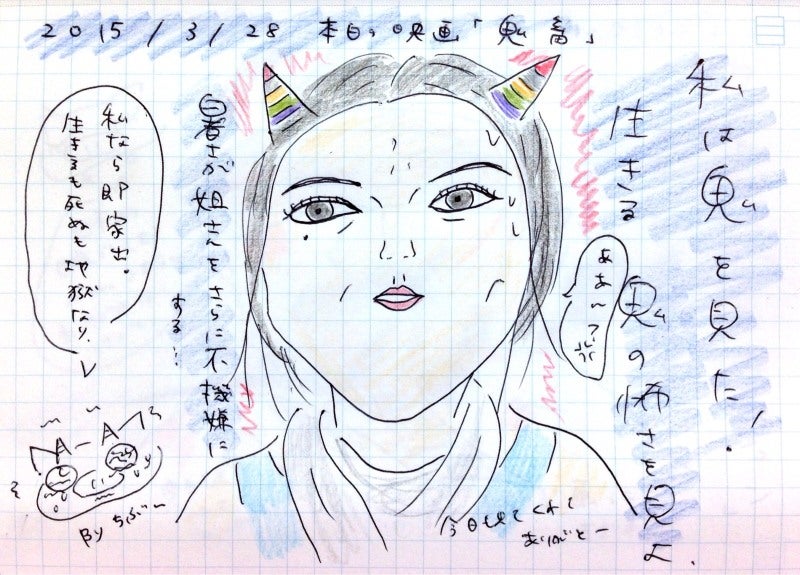 2015/3/28 本日、映画「鬼畜」
私は鬼を見た!
生きる鬼の怖さを見よ.
暑さが姐さんをさらに不機嫌に
する…
私なら即家出。
生きるも死ぬも地獄なり、
By ちぶー
今日も見てくれて
ありがとー